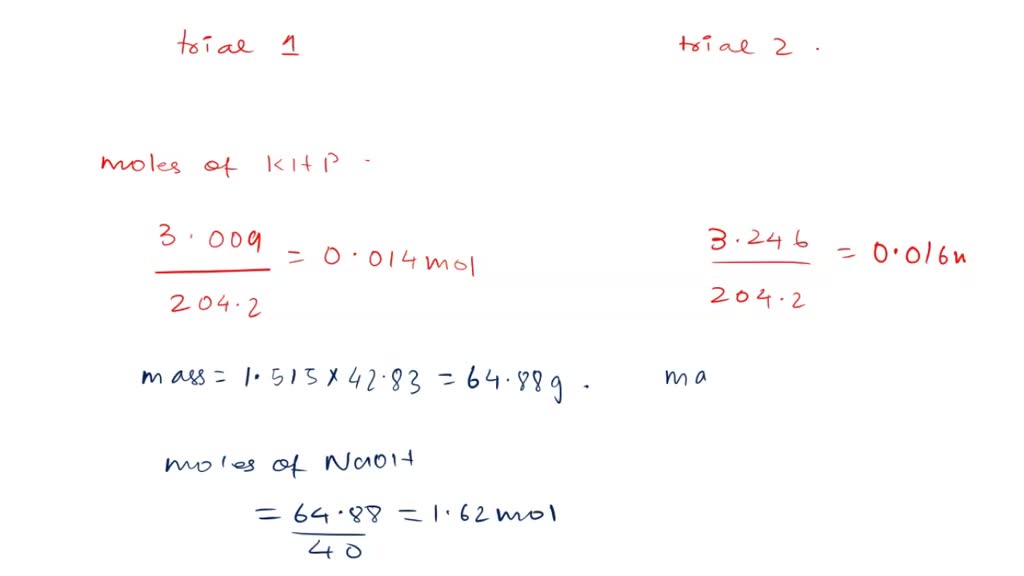 trial 1
trial 2.
moles of KHP.
3.009 / 204.2 = 0.014 mol
3.246 / 204.2 = 0.016m
mass = 1.515 x 42.83 = 64.88g.
ma
moles of NaOH
= 64.88 / 40 = 1.62 mol